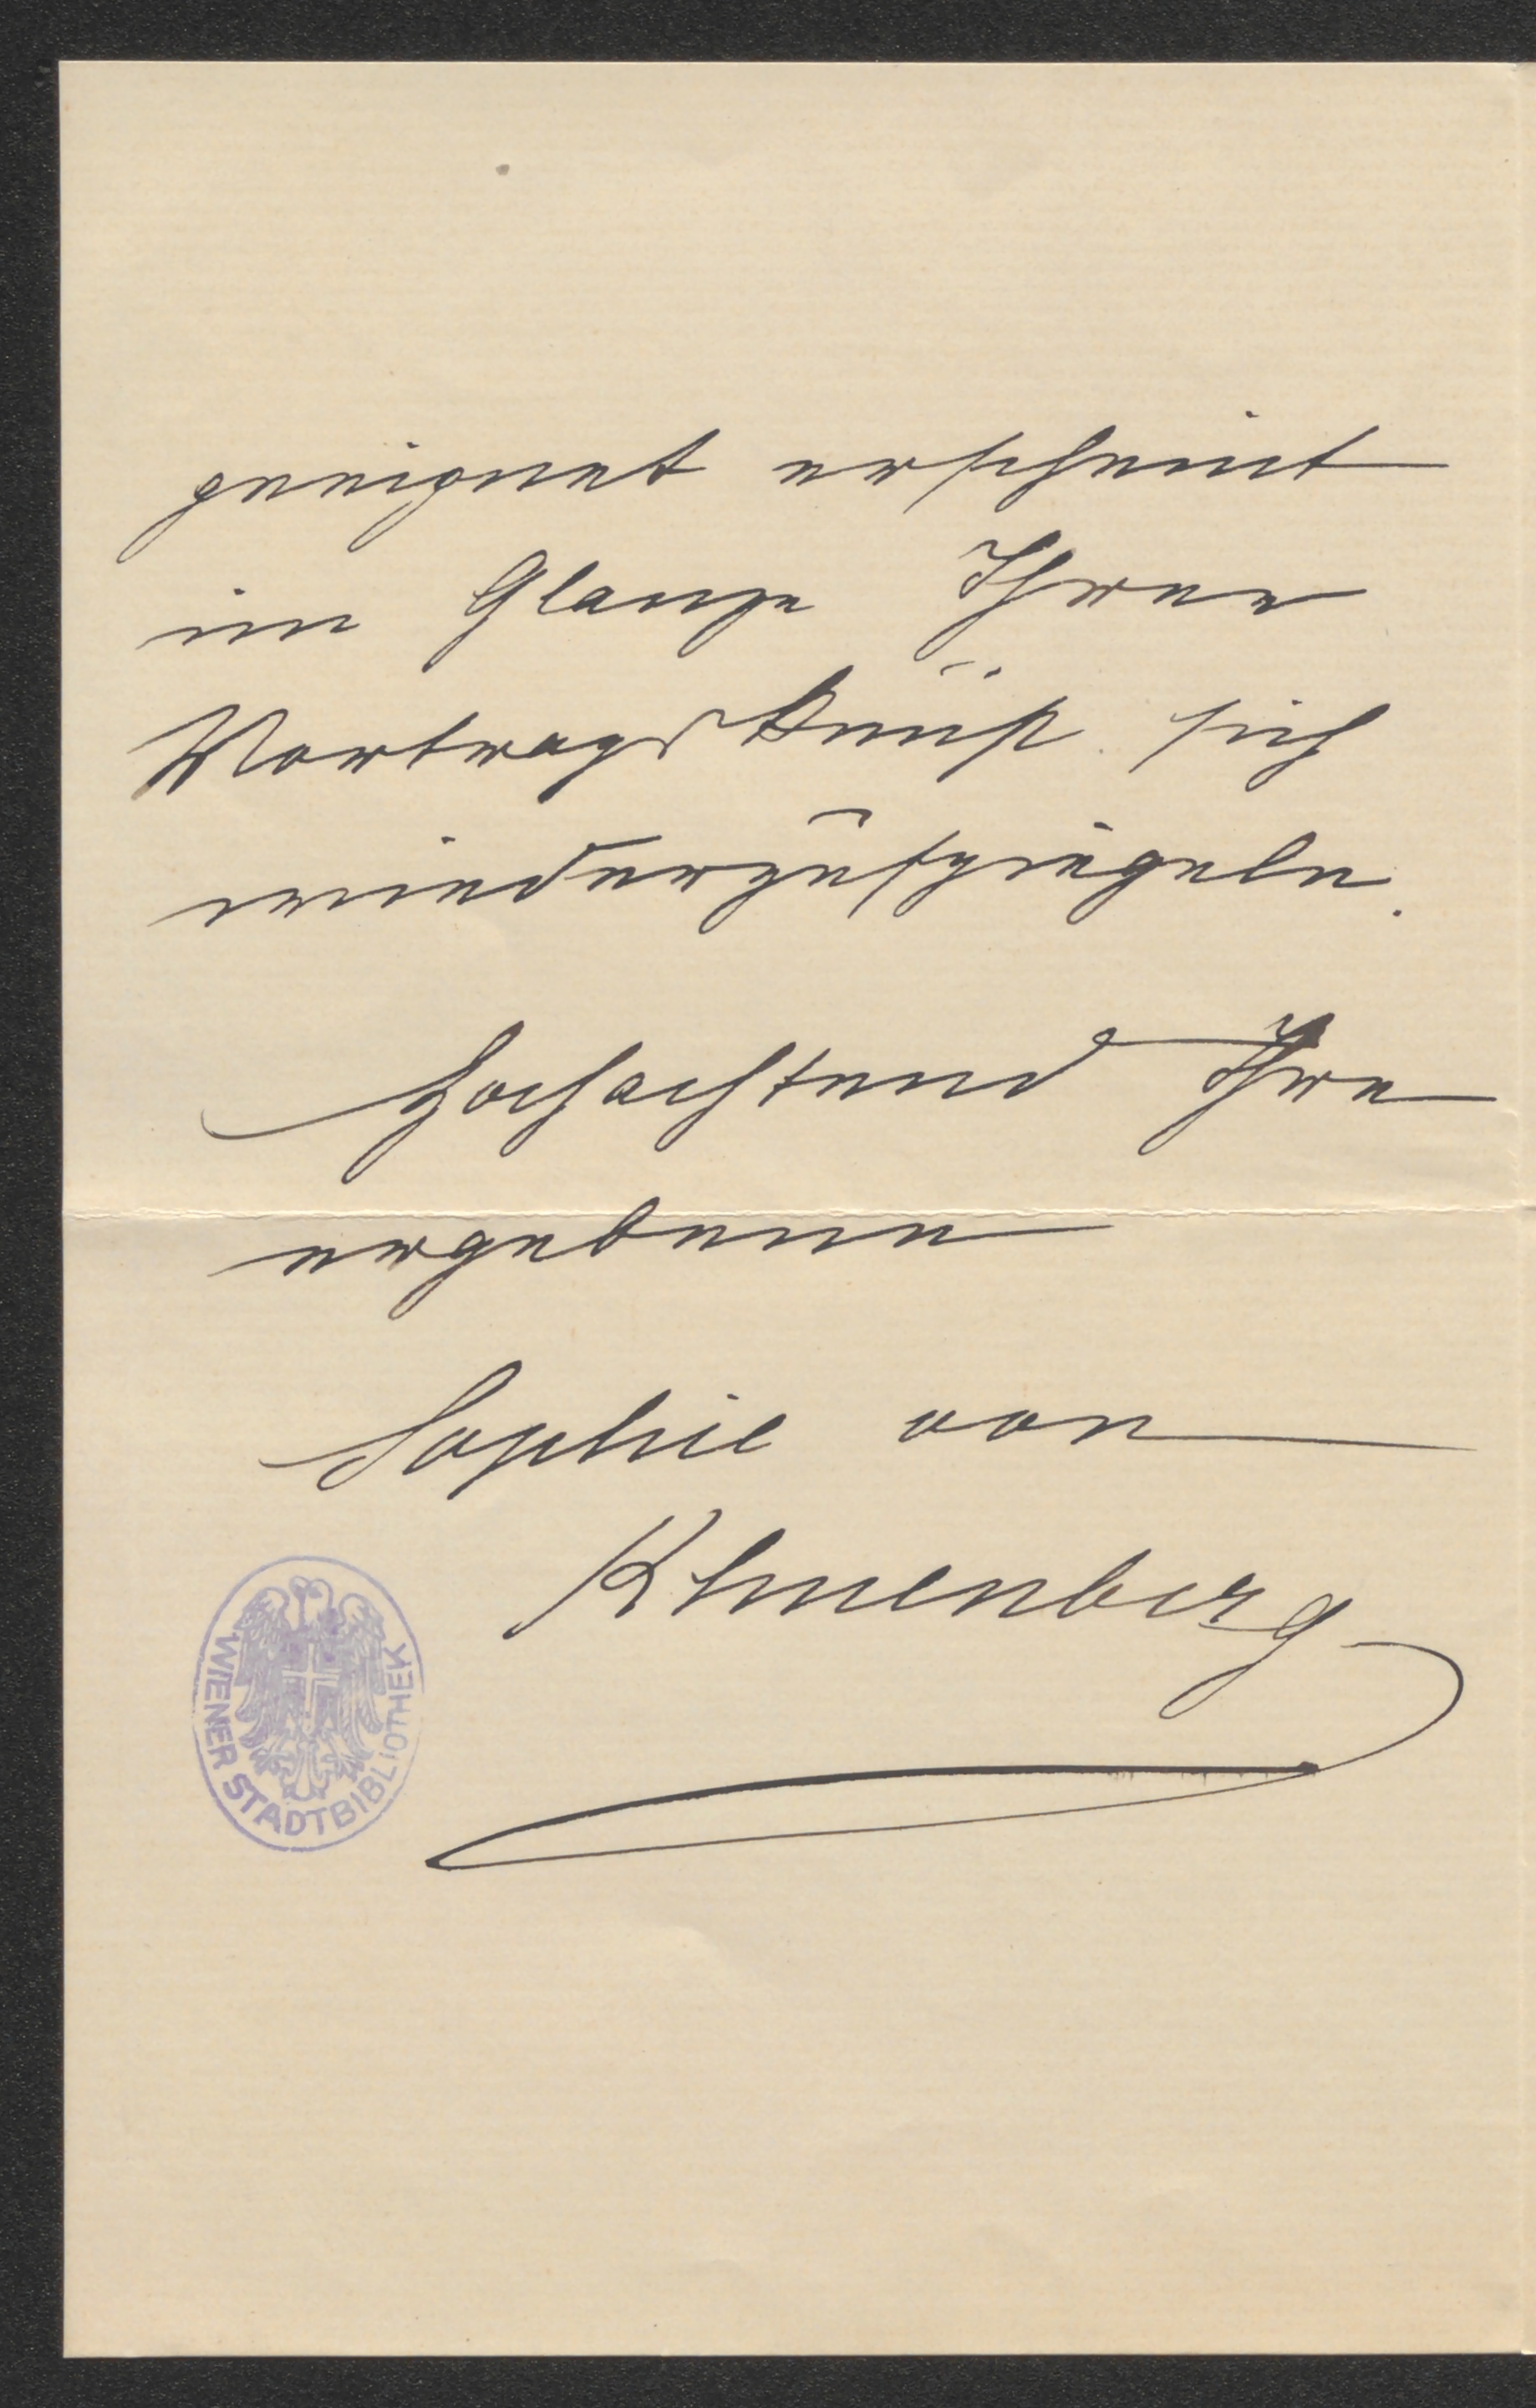 geeignet erscheint
im Glanze Ihrer
Vortragskunst sich
wiederzuspiegeln.
Hochachtend Ihre
ergebene
Sophie von
Khuenberg
WIENER STADTBIBLIOTHEK